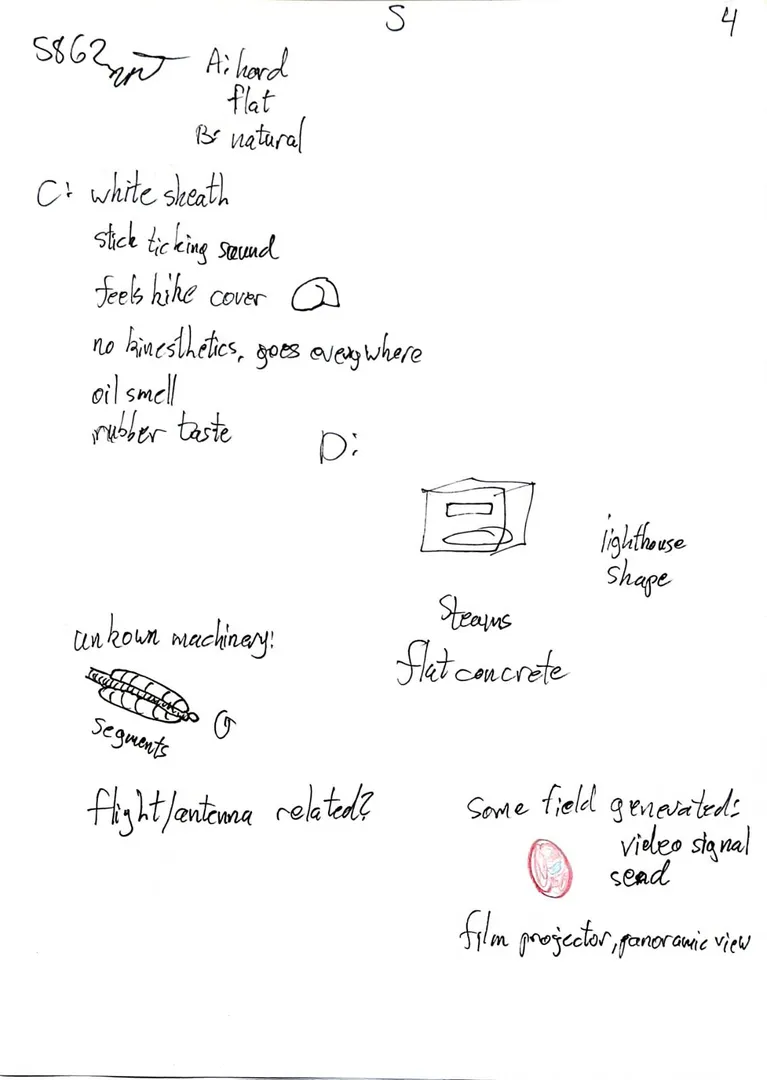 S
4
5862
A: hard
flat
B: natural
C: white sheath
stick ticking sound
feels hike cover
no kinesthetics, goes everywhere
oil smell
rubber taste
D:
lighthouse
shape
Steams
flat concrete
unkown machinery:
segments
flight/antenna related?
Some field generated:
video signal
send
film projector, panoramic view